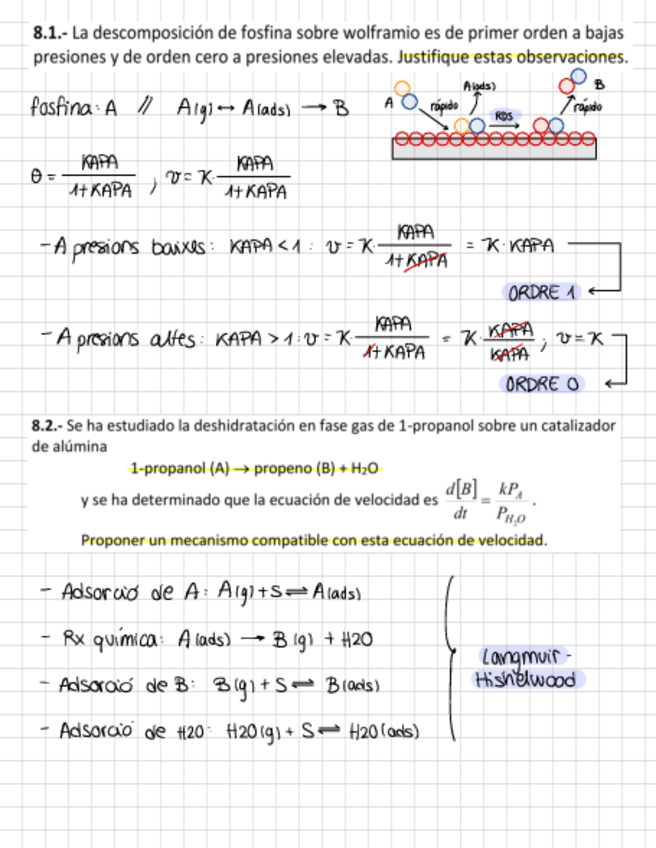 8.1.- La descomposición de fosfina sobre wolframio es de primer orden a bajas
presiones y de orden cero a presiones elevadas. Justifique estas observaciones.
fosfina: A // A(g) ↔ A(ads) → B
A rápido A(ads) RDS rápido B
θ = KAPA / 1+KAPA , v = K · KAPA / 1+KAPA
- A presions baixes: KAPA < 1 : v = K · KAPA / 1+KAPA = K · KAPA
ORDRE 1
- A presions altes: KAPA > 1 : v = K · KAPA / 1+KAPA = K · KAPA / KAPA ; v = K
ORDRE 0
8.2.- Se ha estudiado la deshidratación en fase gas de 1-propanol sobre un catalizador
de alúmina
1-propanol (A) → propeno (B) + H₂O
y se ha determinado que la ecuación de velocidad es d[B]/dt = kP_A / P_H₂O .
Proponer un mecanismo compatible con esta ecuación de velocidad.
- Adsorció de A: A(g) + S ⇌ A(ads)
- Rx química: A(ads) → B(g) + H2O
- Adsorció de B: B(g) + S ⇌ B(ads)
- Adsorció de H2O: H2O(g) + S ⇌ H2O(ads)
Langmuir-
Hishelwood